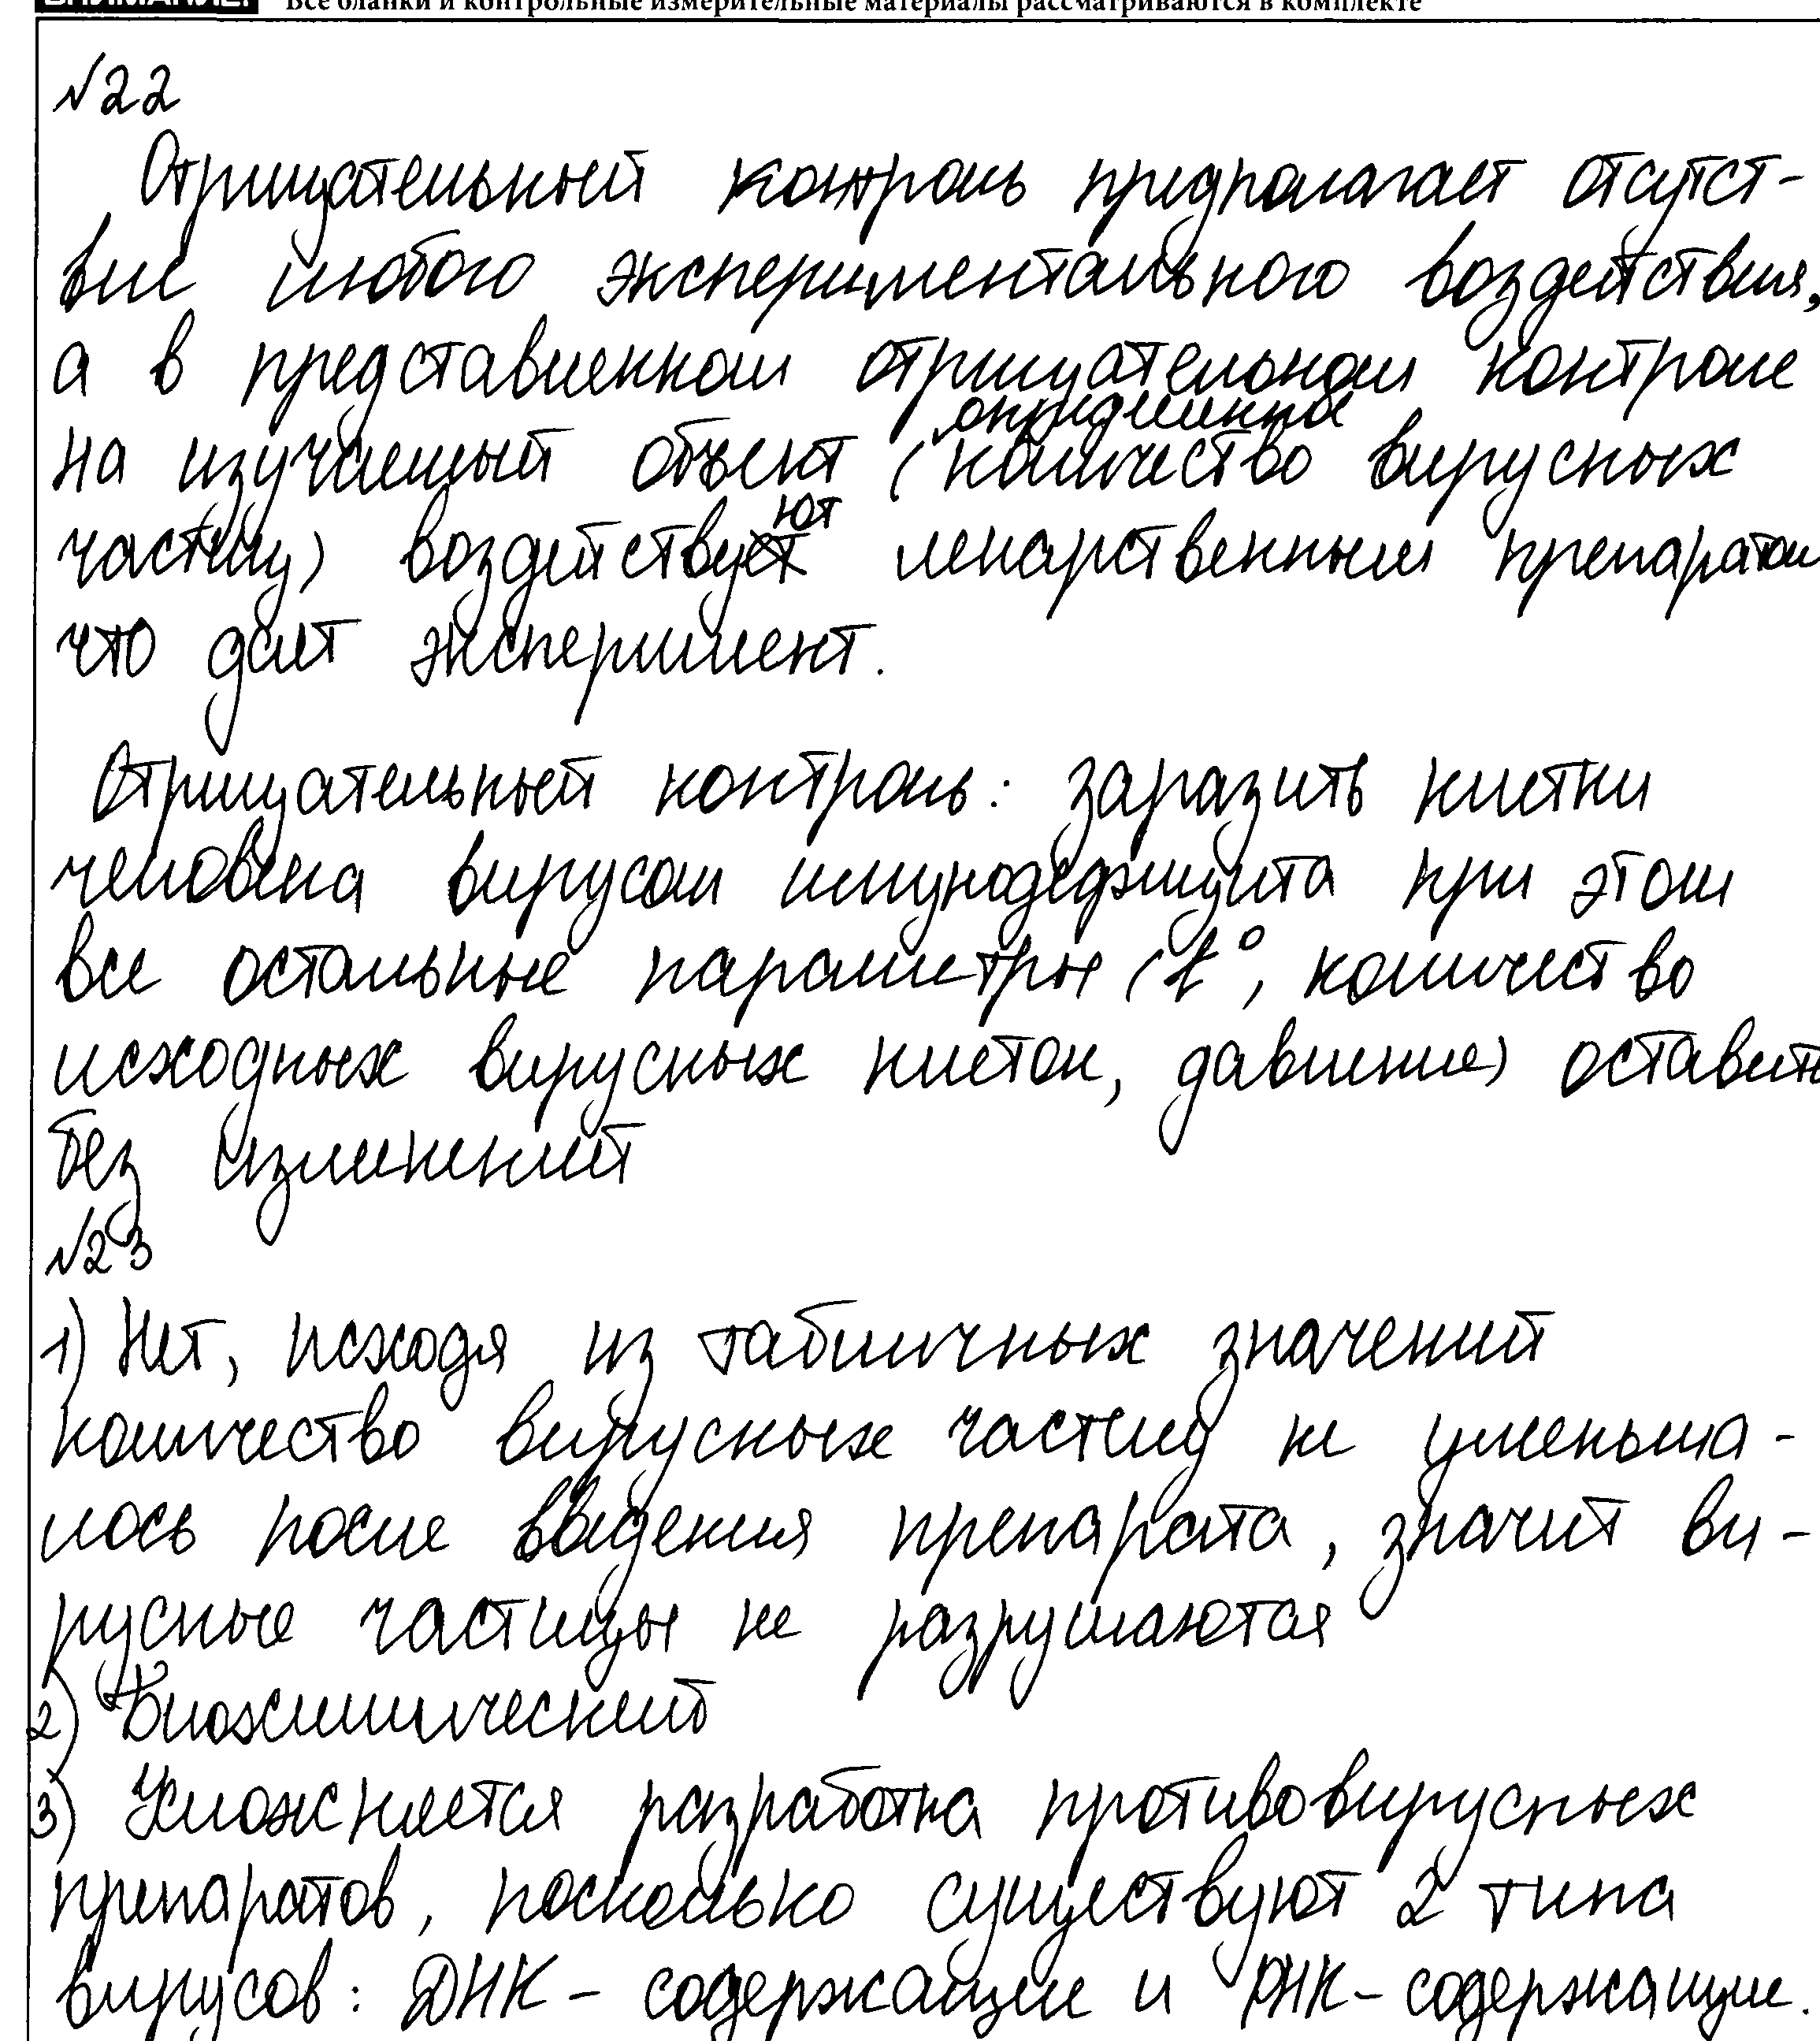 ВНИМАНИЕ! Все бланки и контрольные измерительные материалы рассматриваются в комплекте
№22
Отрицательный контроль предполагает отсутст-
вие любого экспериментального воздействия,
а в представленном отрицательном контроле
определенное
на изучаемый объект (количество вирусных
ют
частиц) воздействует лекарственным препаратом
что дает эксперимент.
Отрицательный контроль: заразить клетки
человека вирусом имунодефицита при этом
все остальные параметры (t°, количество
исходных вирусных клеток, давление) оставить
без изменений
№23
1) Нет, исходя из табличных значений
количество вирусных частиц не уменьша-
лось после введения препарата, значит ви-
русные частицы не разрушаются
2) Биохимический
3) Усложняется разработка противовирусных
препаратов, поскольку существуют 2 типа
вирусов: ДНК - содержащие и РНК-содержащие.